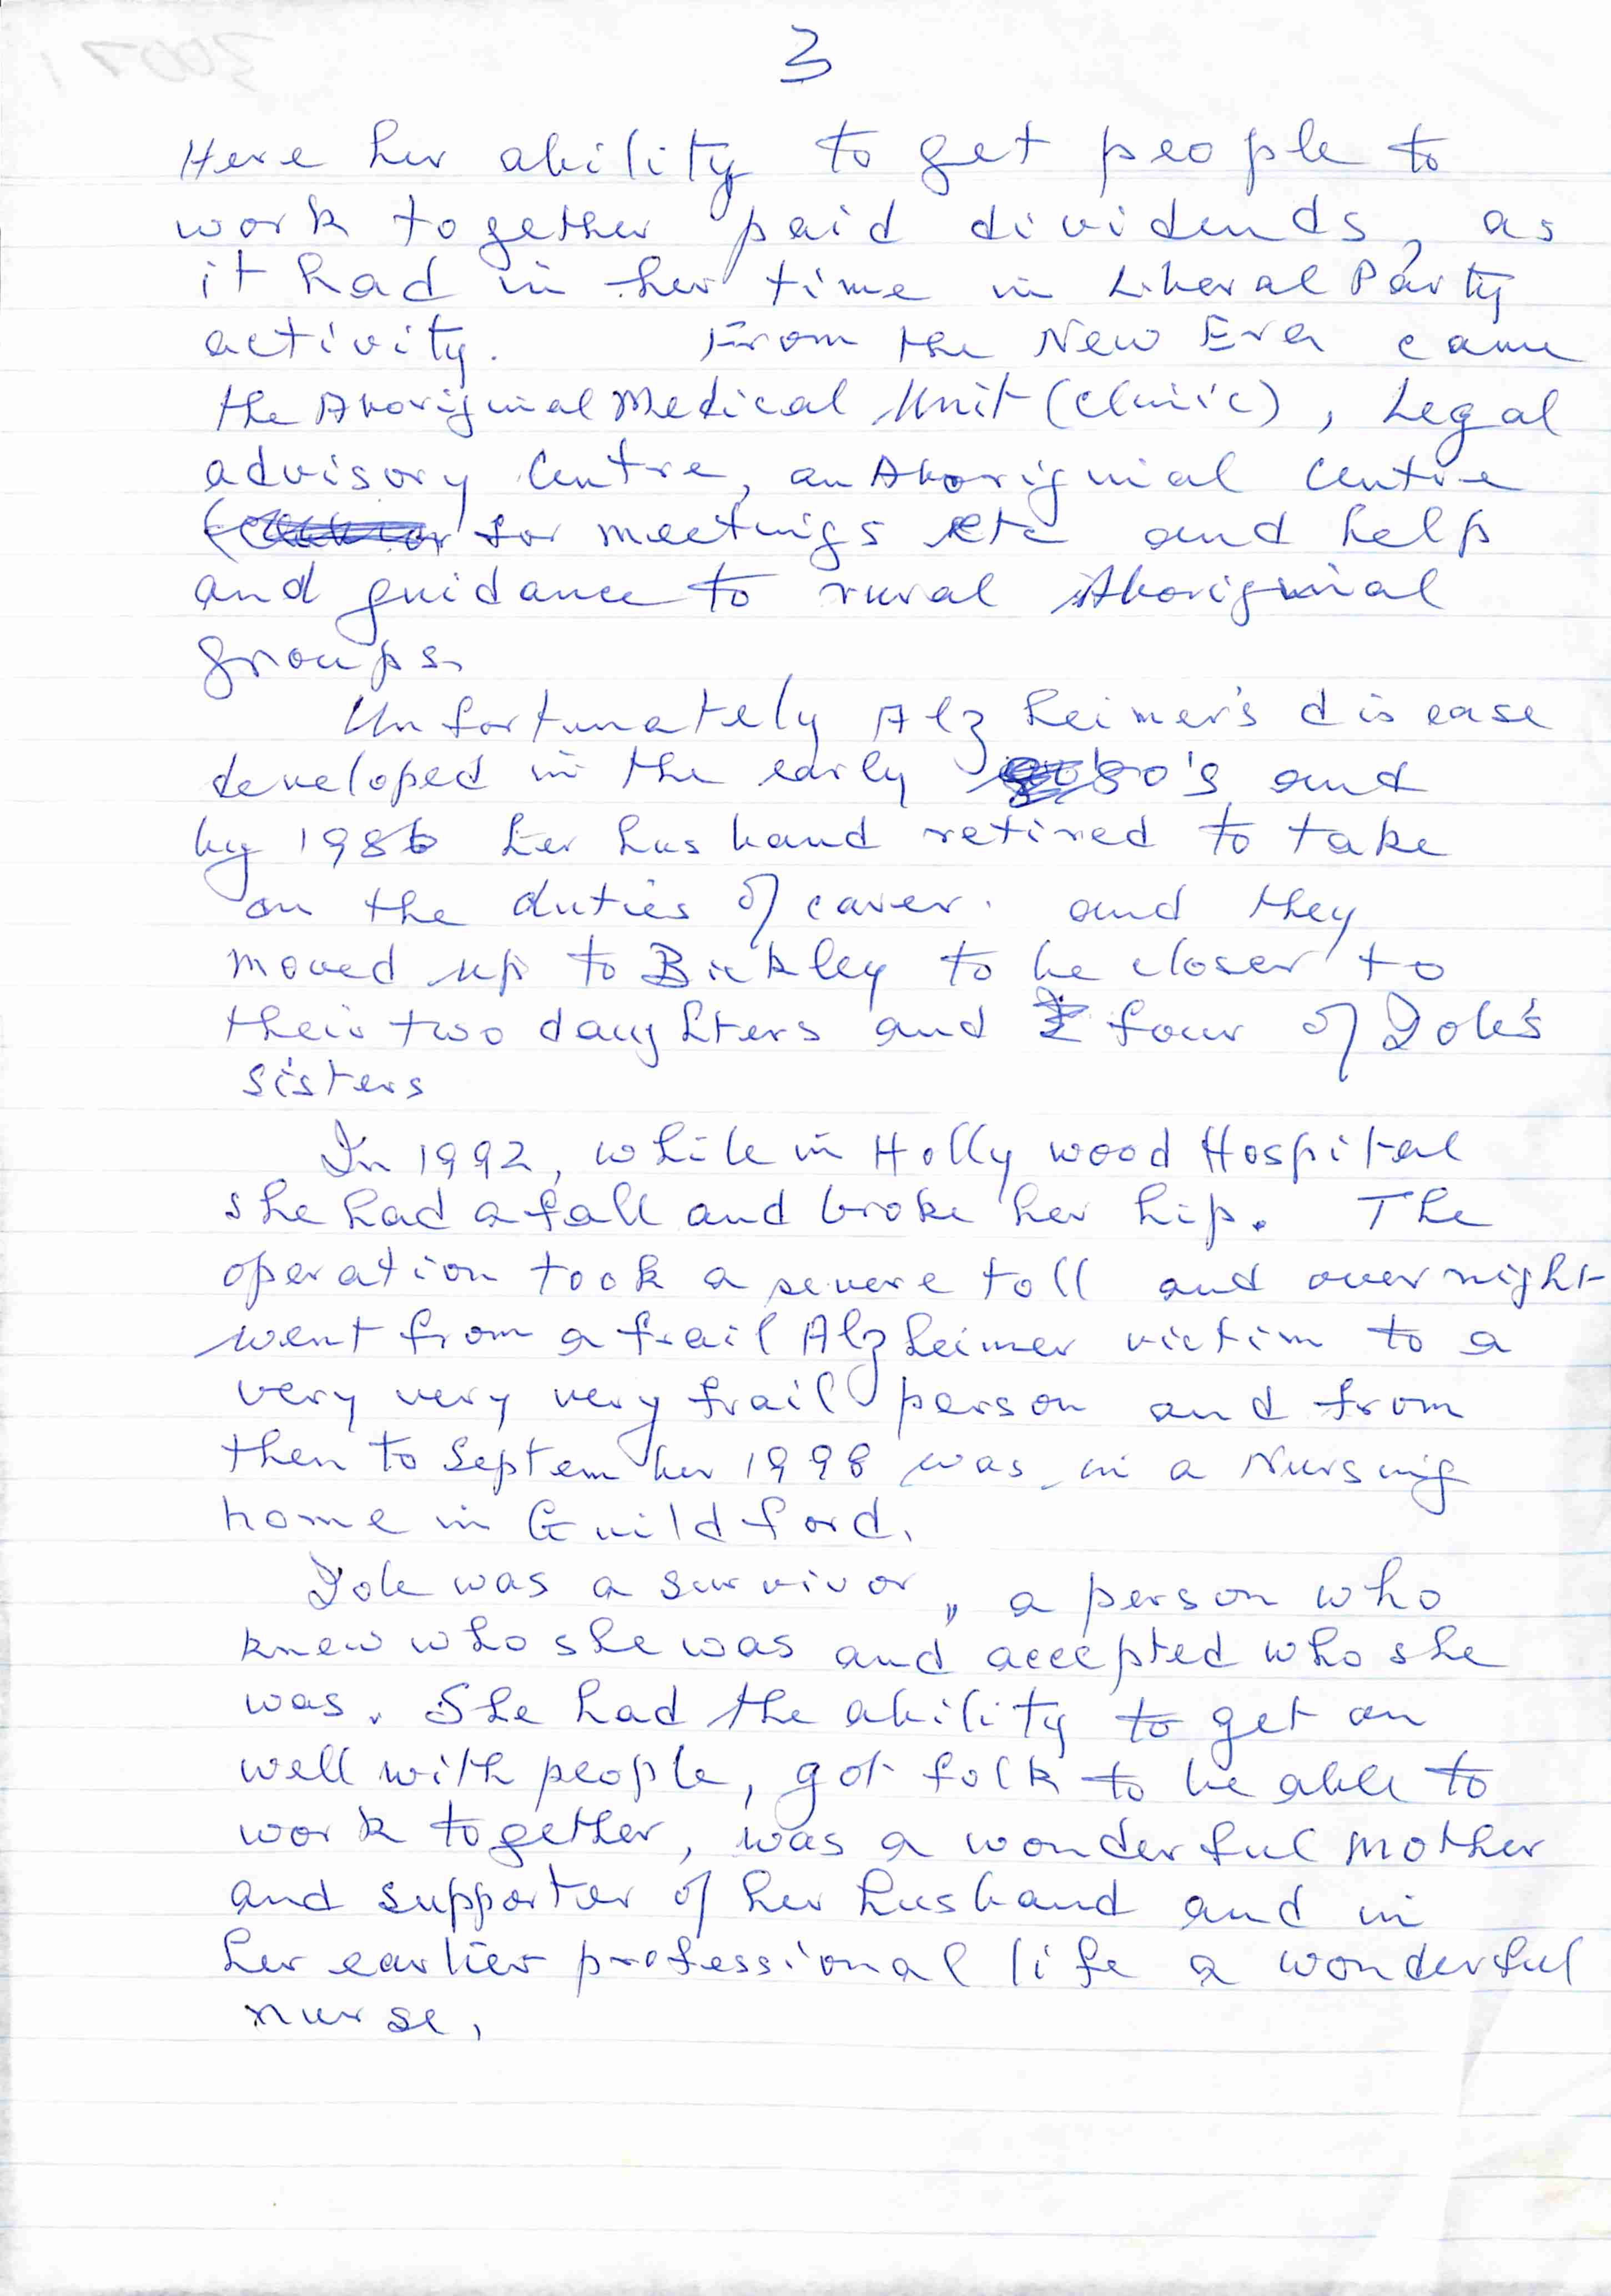 3
Here her ability to get people to
work together paid dividends, as
it had in her time in Liberal Party
activity. From the New Era came
the Aboriginal Medical Unit (Clinic), Legal
advisory Centre, an Aboriginal Centre
for meetings etc and help
and guidance to rural Aboriginal
groups.
Unfortunately Alzheimer's disease
developed in the early 80's and
by 1986 her husband retired to take
on the duties of carer. and they
moved up to Bickley to be closer to
their two daughters and four of Dole's
sisters
In 1992, while in Hollywood Hospital
she had a fall and broke her hip. The
operation took a severe toll and overnight
went from a frail Alzheimer victim to a
very very very frail person and from
then to September 1998 was in a Nursing
home in Guildford.
Dole was a survivor, a person who
knew who she was and accepted who she
was. She had the ability to get on
well with people, got folk to be able to
work together, was a wonderful mother
and supporter of her husband and in
her earlier professional life a wonderful
nurse,